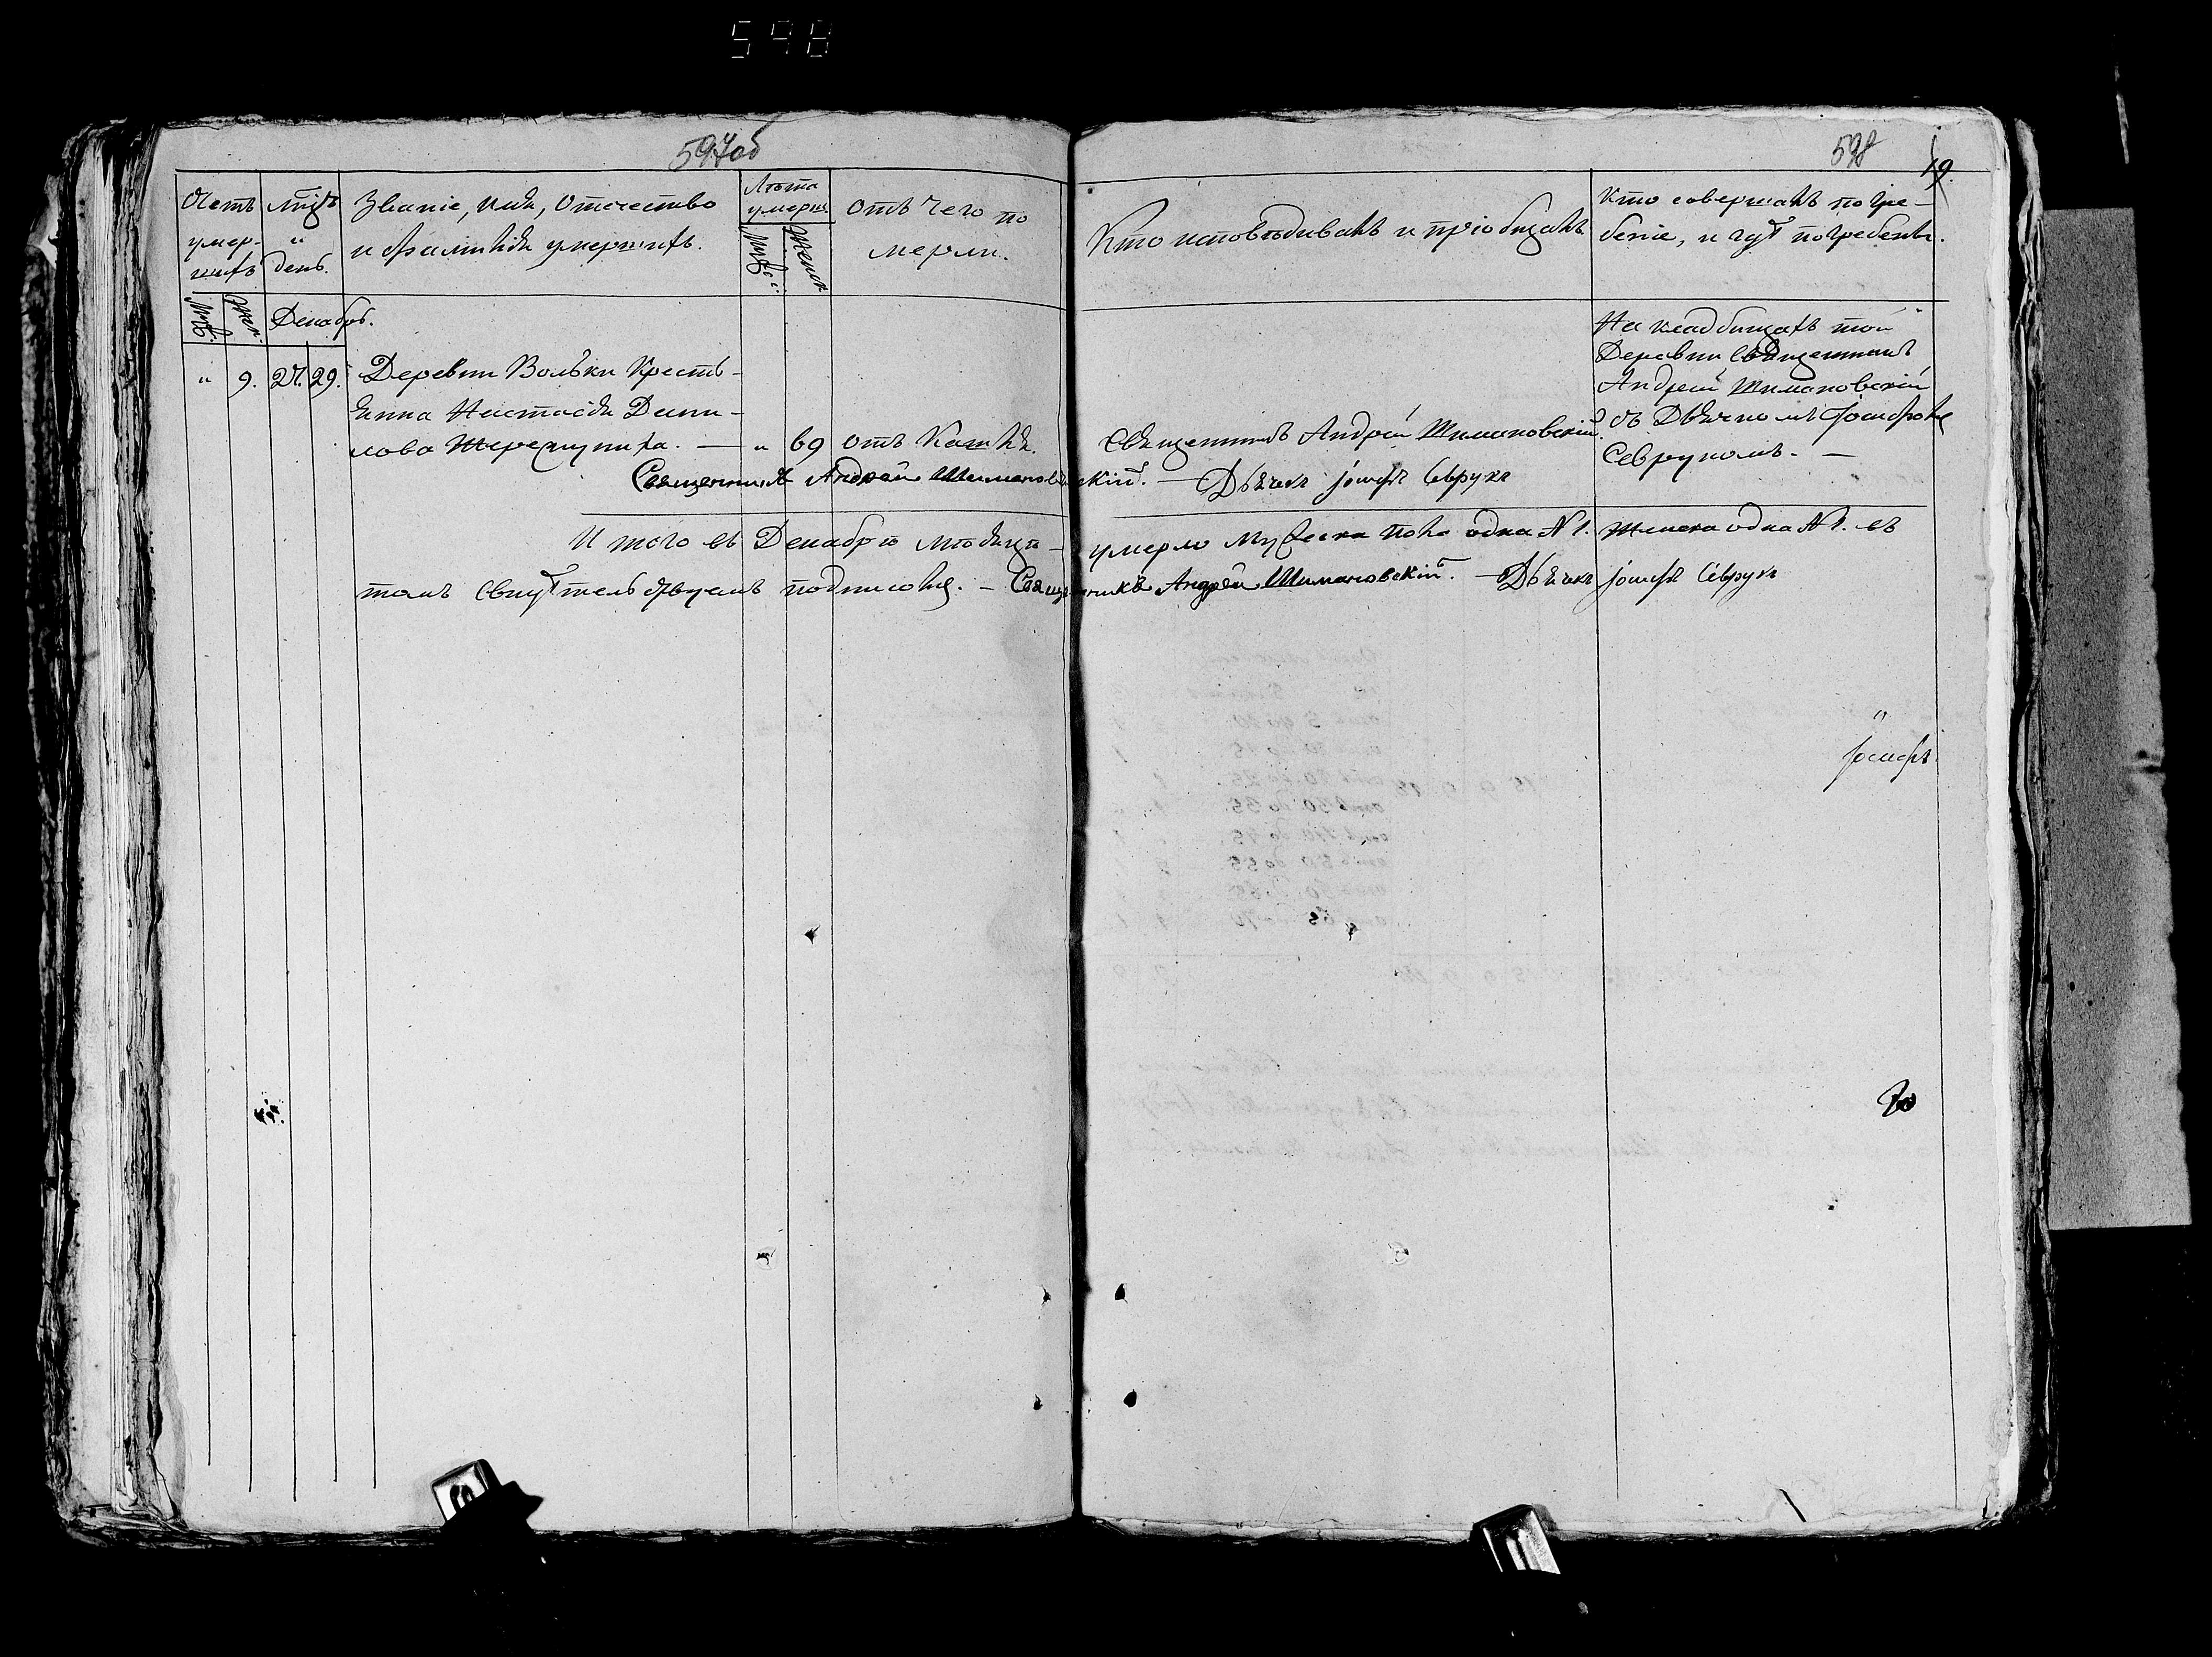 598
597об
598
19.
Счетъ умер-шихъ
мцъ " день.
Званіе, имя, отечество
и фамилія умершихъ.
Лѣта умерш.
Муж:
Женск
отъ чего по
мерли.
Кто исповѣдывалъ и пріобщалъ
Кто совершалъ погре-
беніе, и гдѣ погребены.
Муж.
Жен.
Декабрь.
" 9. 27. 29. Деревни Вольки Кресть-
янка Настасія Дани-
лова Шеремуниха. — " 69 отъ Кашля.
Священникъ Андрей Шимановскій.
На кладбищахъ той
Деревни Священникъ
Андрей Шимановскій
съ Дьячкомъ Іосифомъ
Севрукомъ. —
Священникъ Андрей Шимановскій. — Дьячекъ Іосифъ Севрукъ
Итого въ Декабрѣ мѣсяцѣ умерло Мужеска пола одна № 1. женска одна № 1. въ
томъ свидѣтельствуемъ подписомъ. — Священникъ Андрей Шимановскій. — Дьячекъ Іосифъ Севрукъ
"
Іосифъ